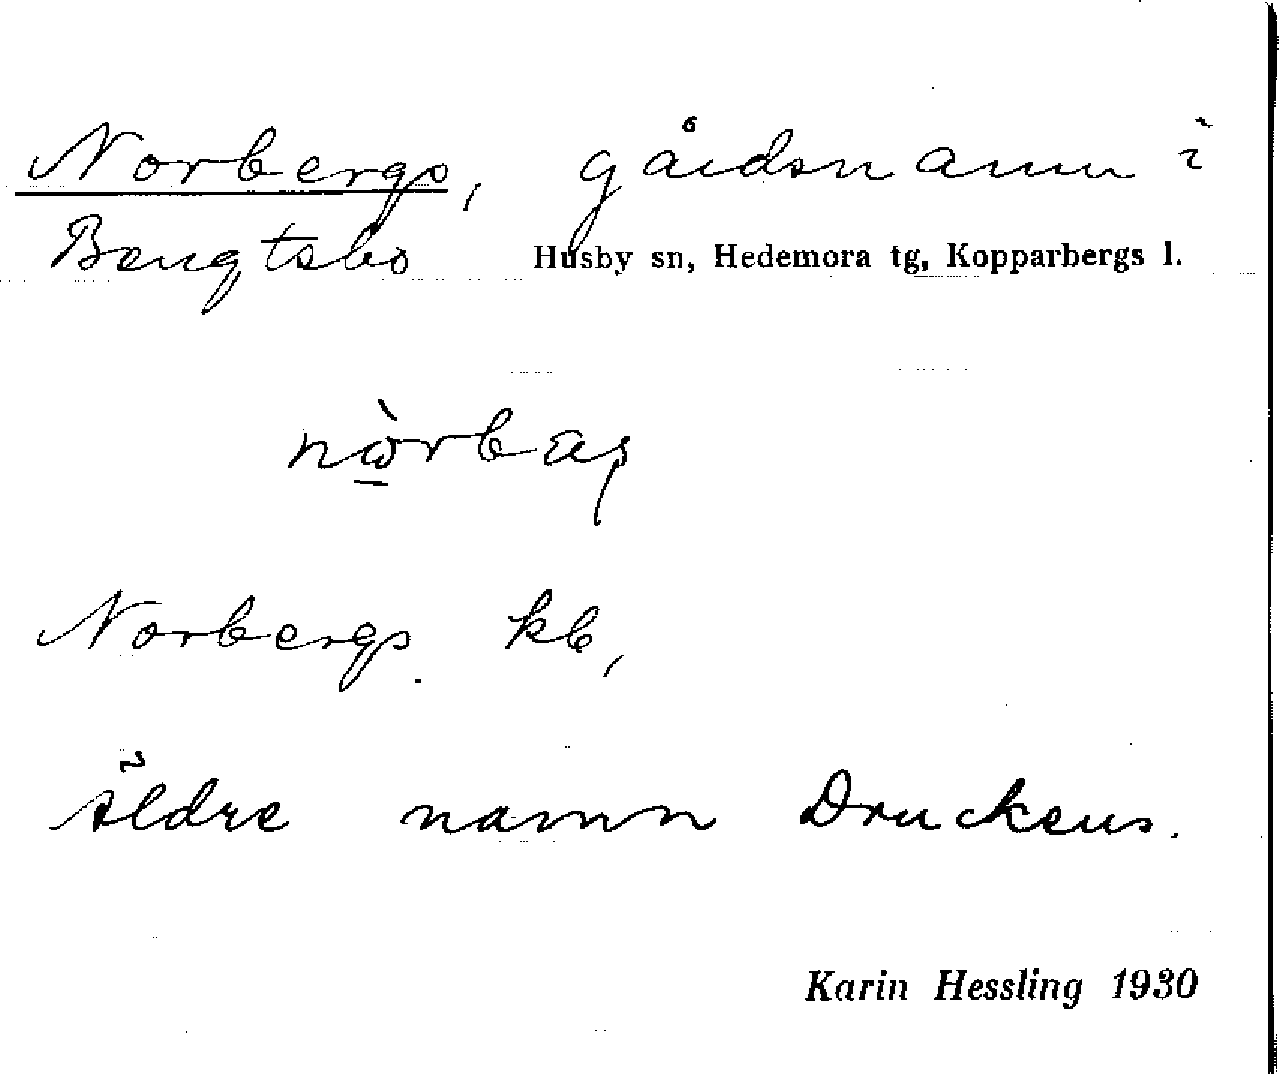 Norbergs, gårdsnamn i
Bengtsbo Husby sn, Hedemora tg, Kopparbergs l.
Norbergs. kb,
äldre namn Druckens.
Karin Hessling 1930